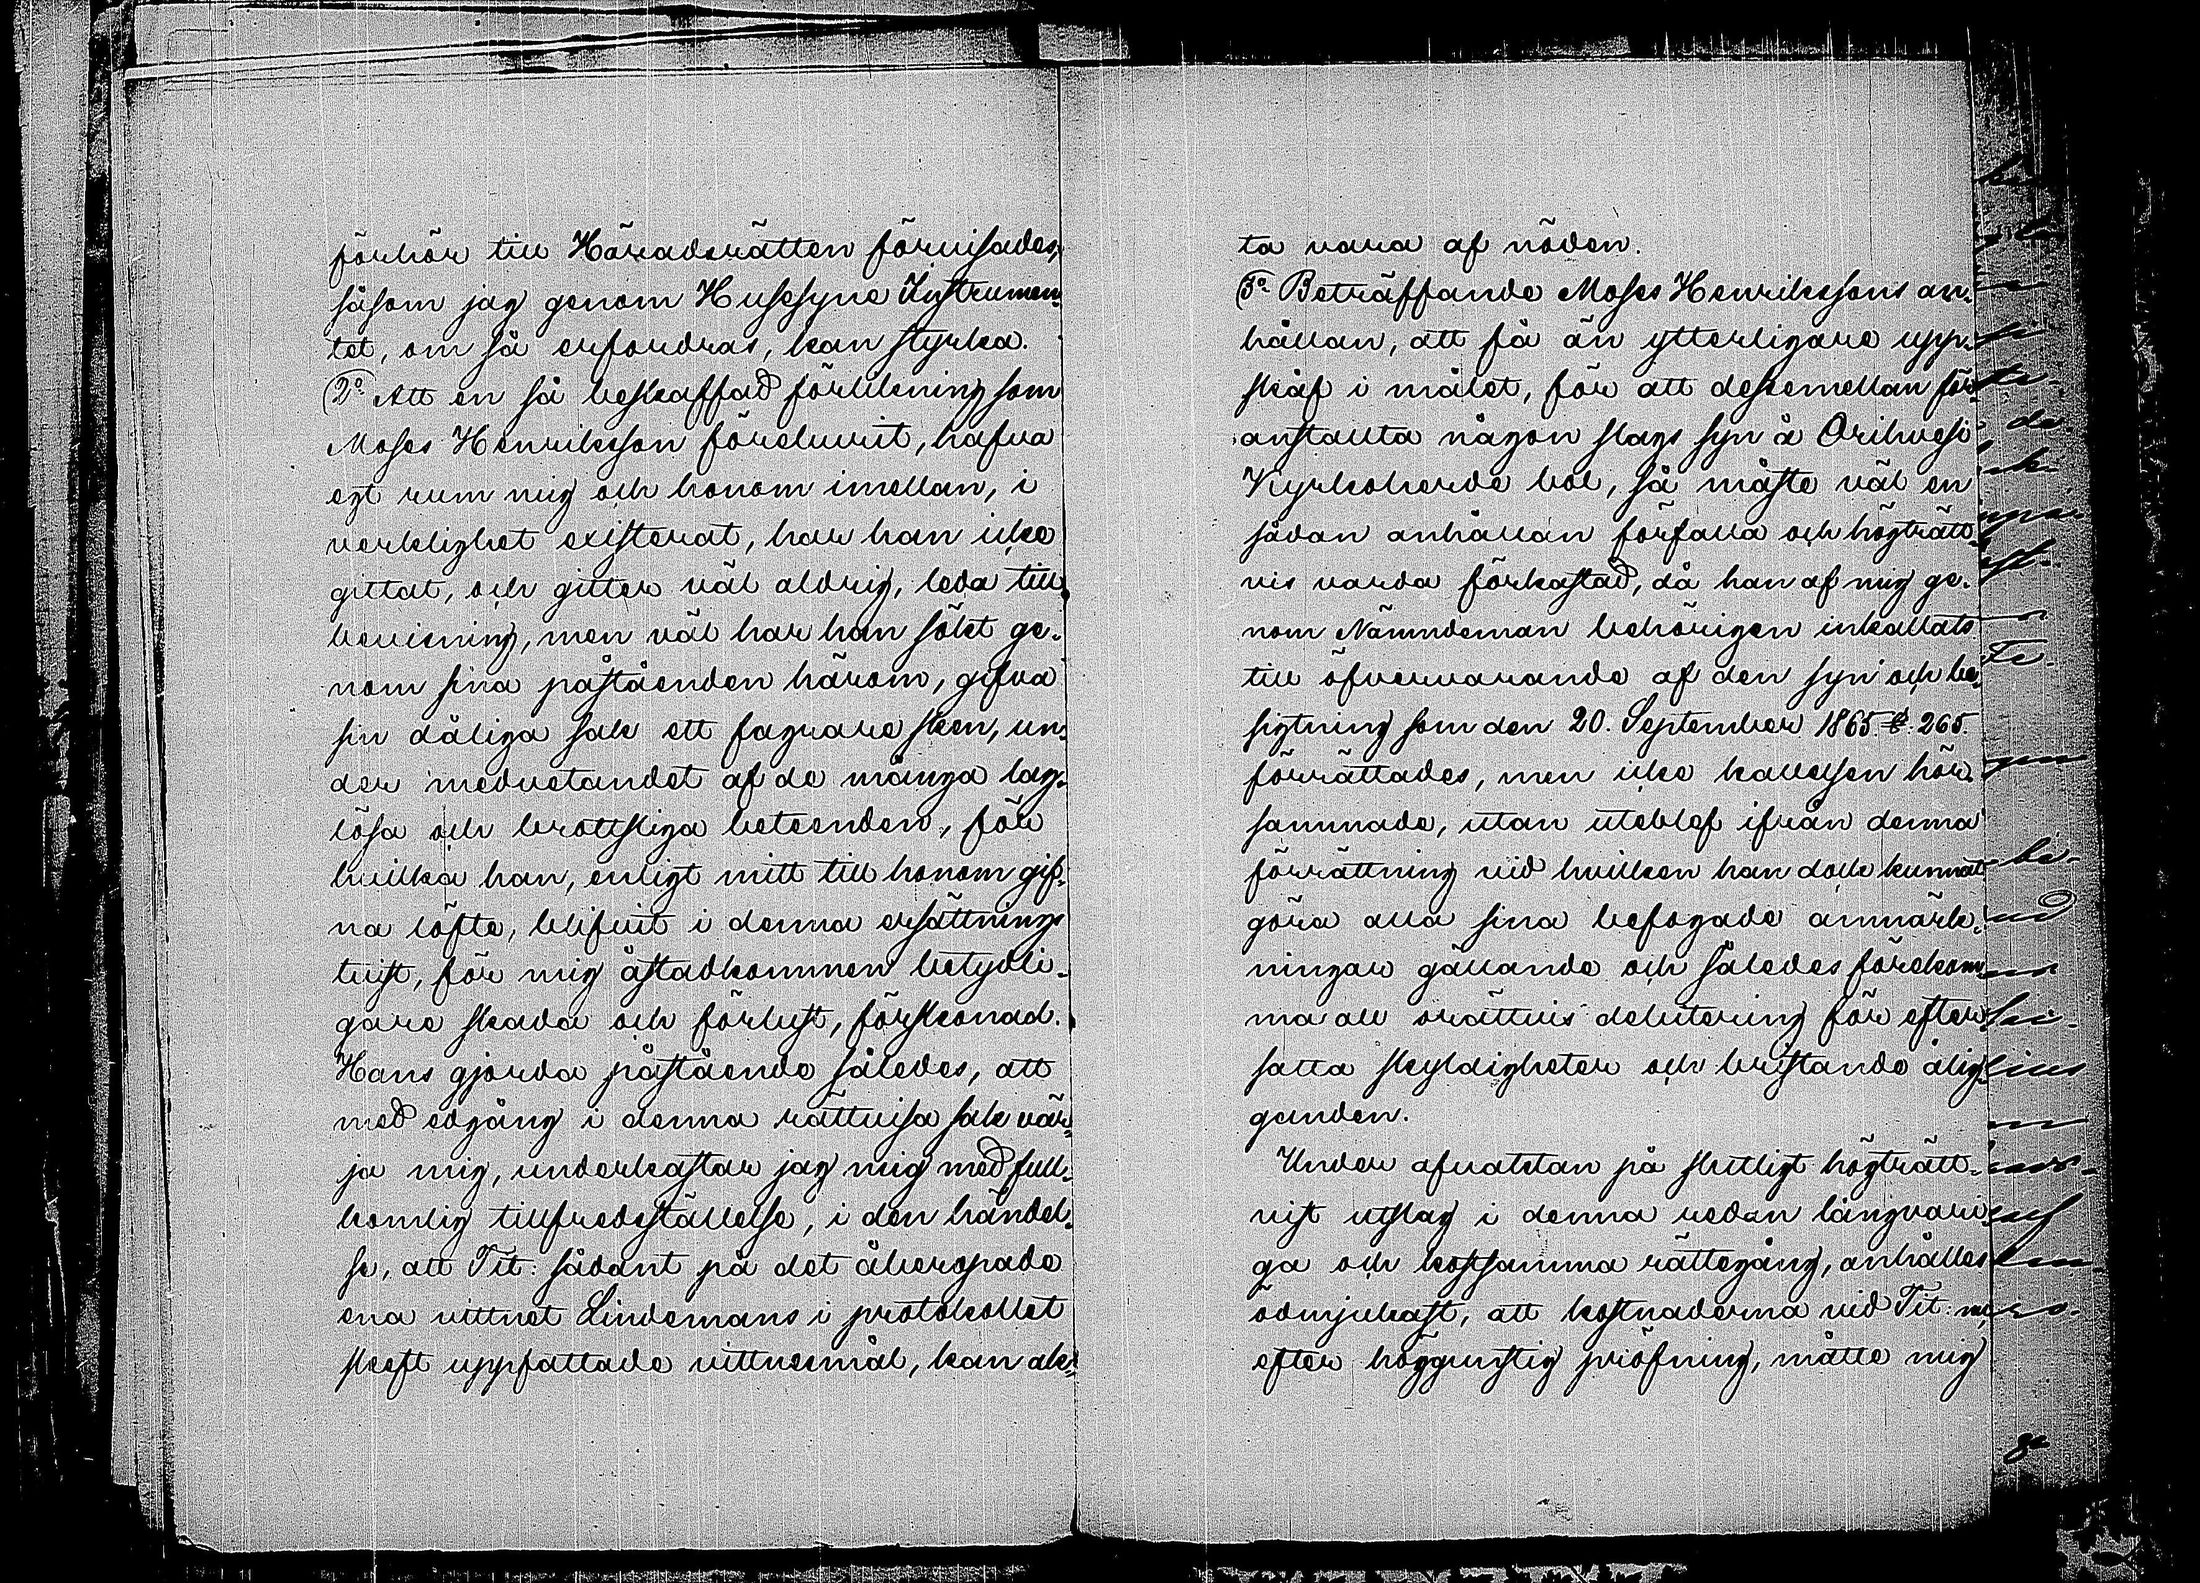 förhör till Häradsrätten förvisades,
såsom jag genom Husesyns Instrumen-
tet, om så erfordras, kan styrka.
2:o Att en så beskaffad förlikning som
Moses Henriksson föreburit, hafva
egt rum mig och honom imellan, i
verklighet existerat, har han icke
gittat, och gitter väl aldrig, leda till
bevisning, men väl har han sökt ge-
nom sina påståenden härom, gifva
sin dåliga sak ett fagrare sken, un-
der medvetandet af de många lag-
lösa och brottsliga beteenden, för
hvilka han, enligt mitt till honom gif-
na löfte, blifvit i denna ersättnings
tvist, för mig åstadkommen betydli-
gare skada och förlust, förskonad.
Hans gjorda påstående således, att
med edgång i denna rättvisa sak vär-
ja mig, underkastar jag mig med full-
komlig tillfredsställelse, i den händel-
se, att Tit: sådant på det åberopade
ena vittnet Lindemans i protokollet
skeft uppfattade vittnesmål, kan ak-
ta vara af nöden.
3:o Beträffande Moses Henrikssons an-
hållan, att få än ytterligare upp-
skåf i målet, för att dessemellan för-
anstalta någon slags syn å Orihvesi
Kyrkoherde bol, så måste väl en
sådan anhållan förfalla och högträtt-
vis varda förkastad, då han af mig ge-
nom Nämndeman behörigen inkallats
till öfvervarande af den syn och be-
sigtning som den 20. September 1865 § 265.
förrättades, men icke kallelsen hör-
sammade, utan uteblef ifrån denna
förrättning vid hvilken han dock kunnat
göra alla sina befogade anmärk-
ningar gällande och således förekom-
ma all orättvis debitering för efter
satta skyldigheter och bristande ålig-
ganden.
Under afvaktan på slutligt högträtt-
vist utslag i denna redan långvari-
ga och kostsamma rättegång, anhålles
ödmjukast, att kostnaderna vid Tit:
efter höggunstig pröfning, måtte mig